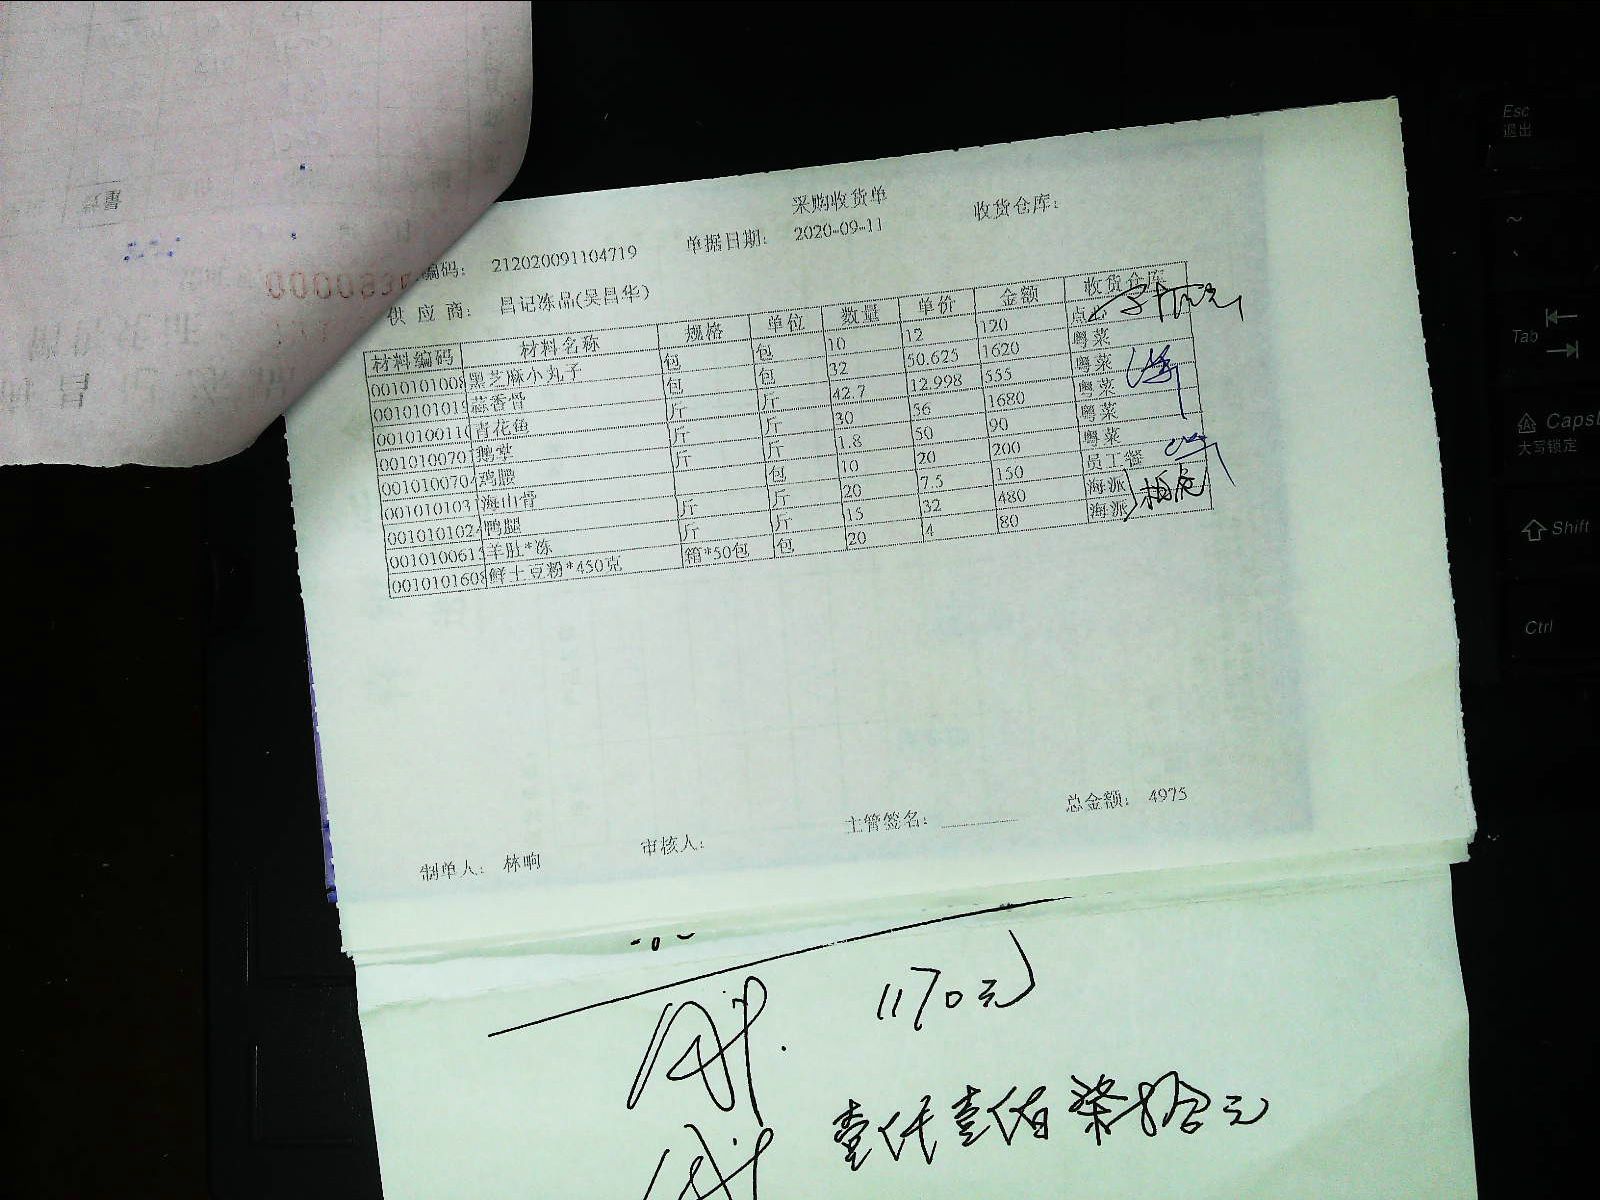 采购收货单
编码: 212020091104719 单据日期: 2020-09-11 收货仓库:
供应商: 昌记冻品(吴昌华)
材料编码 材料名称 规格 单位 数量 单价 金额 收货仓库
001010100 黑芝麻小丸子 包 包 10 12 120 点
001010101 蒜香骨 包 包 32 50.625 1620 粤菜
001010011 青花鱼 斤 斤 42.7 12.998 555 粤菜
001010070 鹅掌 斤 斤 30 56 1680 粤菜
001010070 鸡腰 斤 斤 1.8 50 90 粤菜
001010103 海山骨 包 10 20 200 粤菜
001010102 鸭腿 斤 斤 20 7.5 150 员工餐
001010061 羊肚*冻 斤 斤 15 32 480 海派
001010160 鲜土豆粉*450克 箱*50包 包 20 4 80 海派
制单人: 林响 审核人: 主管签名: 总金额: 4975
1170元
壹仟壹佰柒拾元
Esc
退出
~
Tab
Caps
大写锁定
Shift
Ctrl